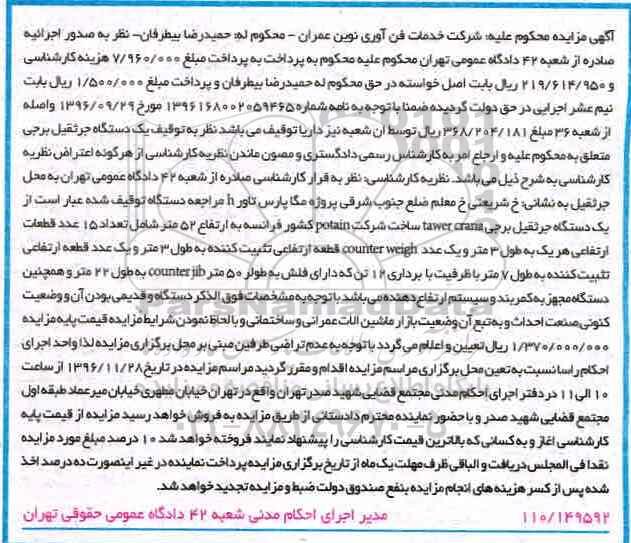 آگهی مزایده محکوم علیه: شرکت خدمات فن آوری نوین عمران - محکوم له: حمیدرضا بیطرفان- نظر به صدور اجرائیه
صادره از شعبه ۴۲ دادگاه عمومی تهران محکوم علیه محکوم به پرداخت به پرداخت مبلغ ۷/۹۶۰/۰۰۰ هزینه کارشناسی
و ۲۱۹/۶۱۴/۹۵۰ ریال بابت اصل خواسته در حق محکوم له حمیدرضا بیطرفان و پرداخت مبلغ ۱/۵۰۰/۰۰۰ ریال بابت
نیم عشر اجرایی در حق دولت گردیده ضمنا با توجه به نامه شماره ۱۳۹۶۱۶۸۰۰۲۰۵۹۴۶۵ مورخ ۱۳۹۶/۰۹/۲۹ واصله
از شعبه ۳۶ مبلغ ۳۶۸/۲۰۴/۱۸۱ ریال توسط آن شعبه نیز دارا توقیف می باشد نظر به توقیف یک دستگاه جرثقیل برجی
متعلق به محکوم علیه و ارجاع امر به کارشناس رسمی دادگستری و مصون ماندن نظریه کارشناسی از هرگونه اعتراض نظریه
کارشناسی به شرح ذیل می باشد. نظریه کارشناسی: نظر به قرار کارشناسی صادره از شعبه ۴۲ دادگاه عمومی تهران به محل
جرثقیل به نشانی: خ شریعتی خ معلم ضلع جنوب شرقی پروژه مگا پارس تاور h مراجعه دستگاه توقیف شده عبار است از
یک دستگاه جرثقیل برجی tawer crana ساخت شرکت potain کشور فرانسه به ارتفاع ۵۲ متر شامل تعداد ۱۵ عدد قطعات
ارتفاعی هر یک به طول ۳ متر و یک عدد counter weigh قطعه ارتفاعی تثبیت کننده به طول ۳ متر و یک عدد قطعه ارتفاعی
تثبیت کننده به طول ۷ متر با ظرفیت با برداری ۱۲ تن که دارای فلش به طولر ۵۰ متر counter jib به طول ۲۲ متر و همچنین
دستگاه مجهز به کمربند و سیستم ارتفاع دهنده می باشد با توجه به مشخصات فوق الذکر دستگاه و قدیمی بودن آن و وضعیت
کنونی صنعت احداث و به تبع آن وضعیت بازار ماشین الات عمرانی و ساختمانی و با لحاظ نمودن شرایط مزایده قیمت پایه مزایده
۱/۳۷۰/۰۰۰/۰۰۰ ریال تعیین و اعلام می گردد با توجه به عدم تراضی طرفین مبنی بر محل برگزاری مزایده لذا واحد اجرای
احکام راسا نسبت به تعین محل برگزاری مراسم مزایده اقدام و مقرر گردید مراسم مزایده در تاریخ ۱۳۹۶/۱۱/۲۸ از ساعت
۱۰ الی ۱۱ در دفتر اجرای احکام مدنی مجتمع قضایی شهید صدر تهران واقع در تهران خیابان مطهری خیابان میرعماد طبقه اول
مجتمع قضایی شهید صدر و با حضور نماینده محترم دادستانی از طریق مزایده به فروش خواهد رسید مزایده از قیمت پایه
کارشناسی اغاز و به کسانی که بالاترین قیمت کارشناسی را پیشنهاد نمایند فروخته خواهد شد ۱۰ درصد مبلغ مورد مزایده
نقدا فی المجلس دریافت و الباقی ظرف مهلت یک ماه از تاریخ برگزاری مزایده پرداخت نماینده در غیر اینصورت ده درصد اخذ
شده پس از کسر هزینه های انجام مزایده بنفع صندوق دولت ضبط و مزایده تجدید خواهد شد.
۱۱۰/۱۴۹۵۹۲ مدیر اجرای احکام مدنی شعبه ۴۲ دادگاه عمومی حقوقی تهران